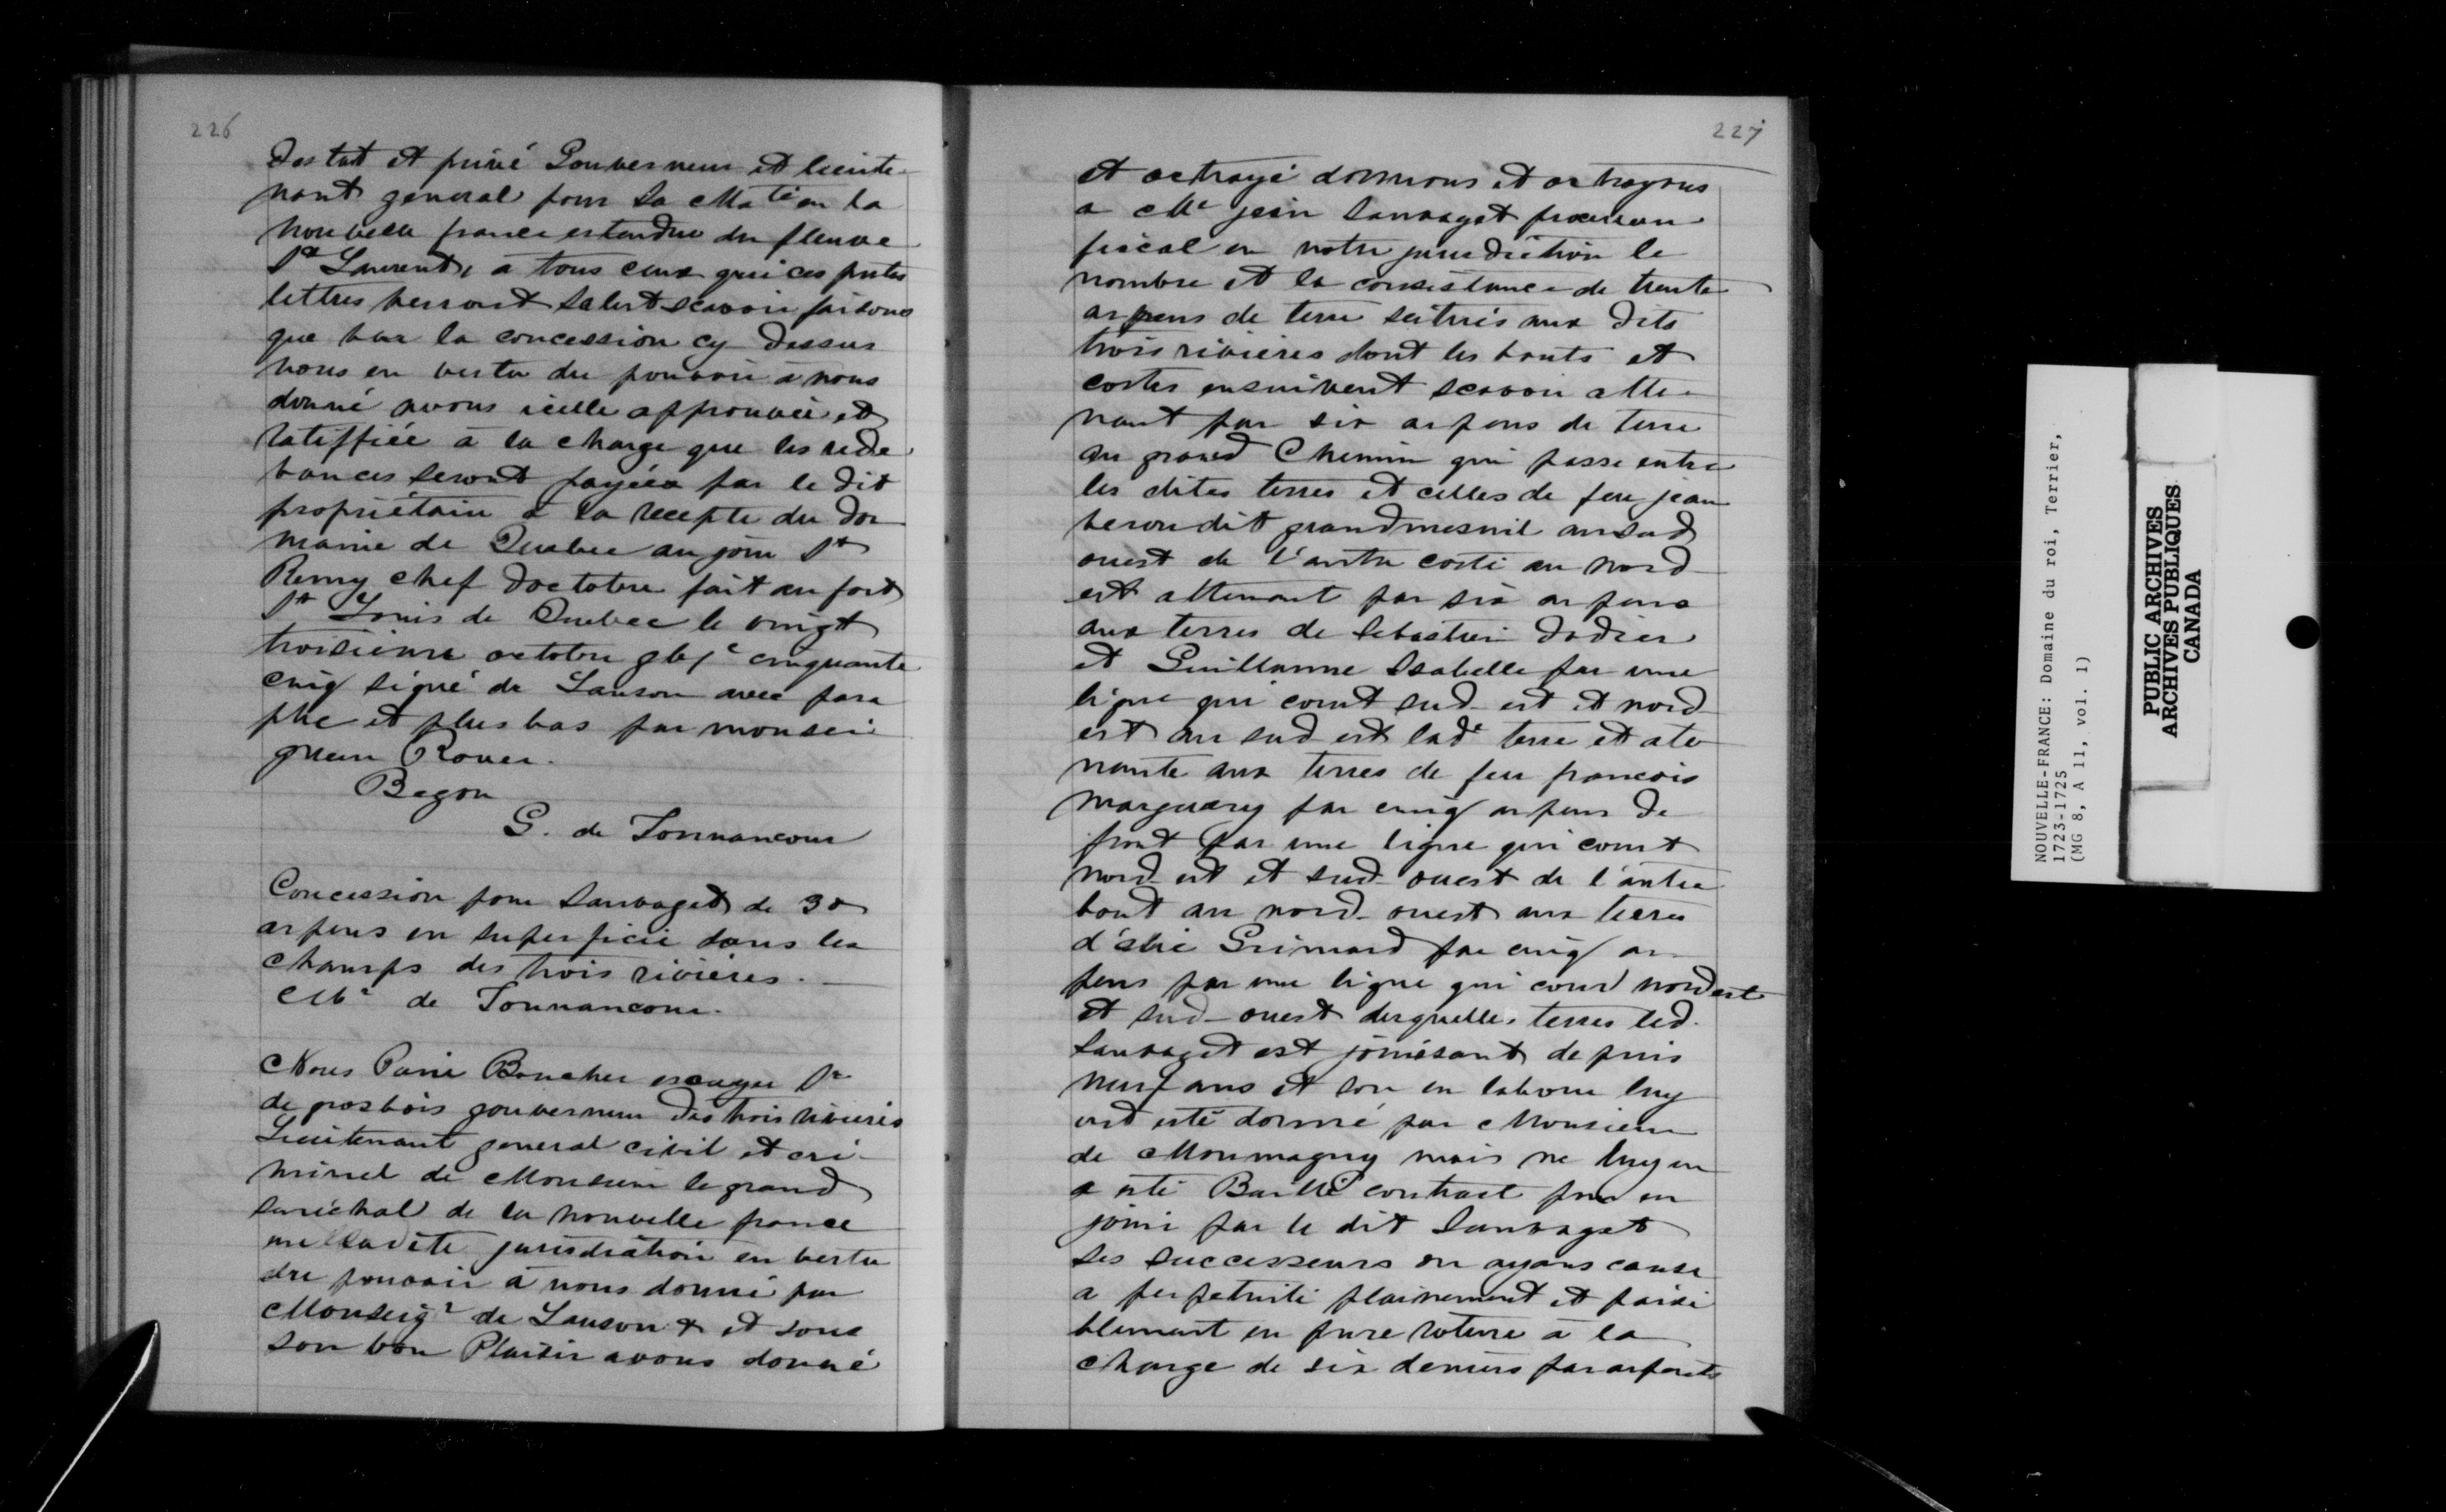 226
Destat et privé Gouverneur et lieute-
nant general pour Sa Maté en la
nouvelle france estendue du fleuve
St Laurent, a tous ceux qui ces pntes
lettres verront Salut scavoir faisons
que veu la concession cy dessus
nous en vertu du pouvoir a nous
donné avons icelle approuvée et
ratiffiée a la charge que les rede
vances seront payées par le dit
propriétaire a la recepte du do-
maine de Quebec au jour St
Remy chef doctobre fait au fort
St Louis de Quebec le vingt
troisieme octobre gbjc cinquante
cinq signé de Lauson avec para
phe et plus bas par monsei
gneur Rouer.
Begon
G. de Tonnancour
Concession pour Sauvaget de 30
arpens en superficie dans les
champs des trois rivières.
Mr de Tonnancour.
Nous Pierre Boucher escuyer Sr
de grosbois gouverneur des trois rivieres
Lieutenant general civil et cri-
minel de Monsieur le grand
senéchal de la nouvelle france
en la dite jurisdiction en vertu
du pouvoir a nous donné par
Monseigr de Lauson & et sous
son bon Plaisir avons donné
227
et octroyé donnons et octroyons
a Me jean Sauvaget procureur
fiscal en notre jurisdiction le
nombre et la consistance de trente
arpens de terre scitués aux dits
trois rivieres dont les bouts et
costes ensuivent scavoir atte-
nant par six arpens de terre
au grand Chemin qui passe entre
les dites terres et celles de feu jean
veron dit grandmesnil au sud
ouest de l'autre costé au nord
est attenant par six arpens
aux terres de Sebastien dodier
et Guillaume Isabelle par une
ligne qui court sud-est et nord
est au sud est lade terre et ate
nante aux terres de feu francois
marguery par cinq arpens de
front par une ligne qui court
nord-est et sud-ouest de l'autre
bout au nord-ouest aux terres
d'élie Grimard par cinq ar-
pens par une ligne qui court nord est
et sud-ouest desquelles terres led.
Sauvaget est jouissant depuis
neuf ans et son en labour luy
ont esté donné par Monsieur
de Monmagny mais ne luy en
a esté Baillé contract pour en
jouir par le dit Sauvaget
ses successeurs ou ayans cause
a perpetuité plainement et paisi
blement en pure roture a la
charge de six deniers par arpents
NOUVELLE-FRANCE: Domaine du roi, Terrier,
1723-1725
(MG 8, A 11, vol. 1)
PUBLIC ARCHIVES
ARCHIVES PUBLIQUES
CANADA